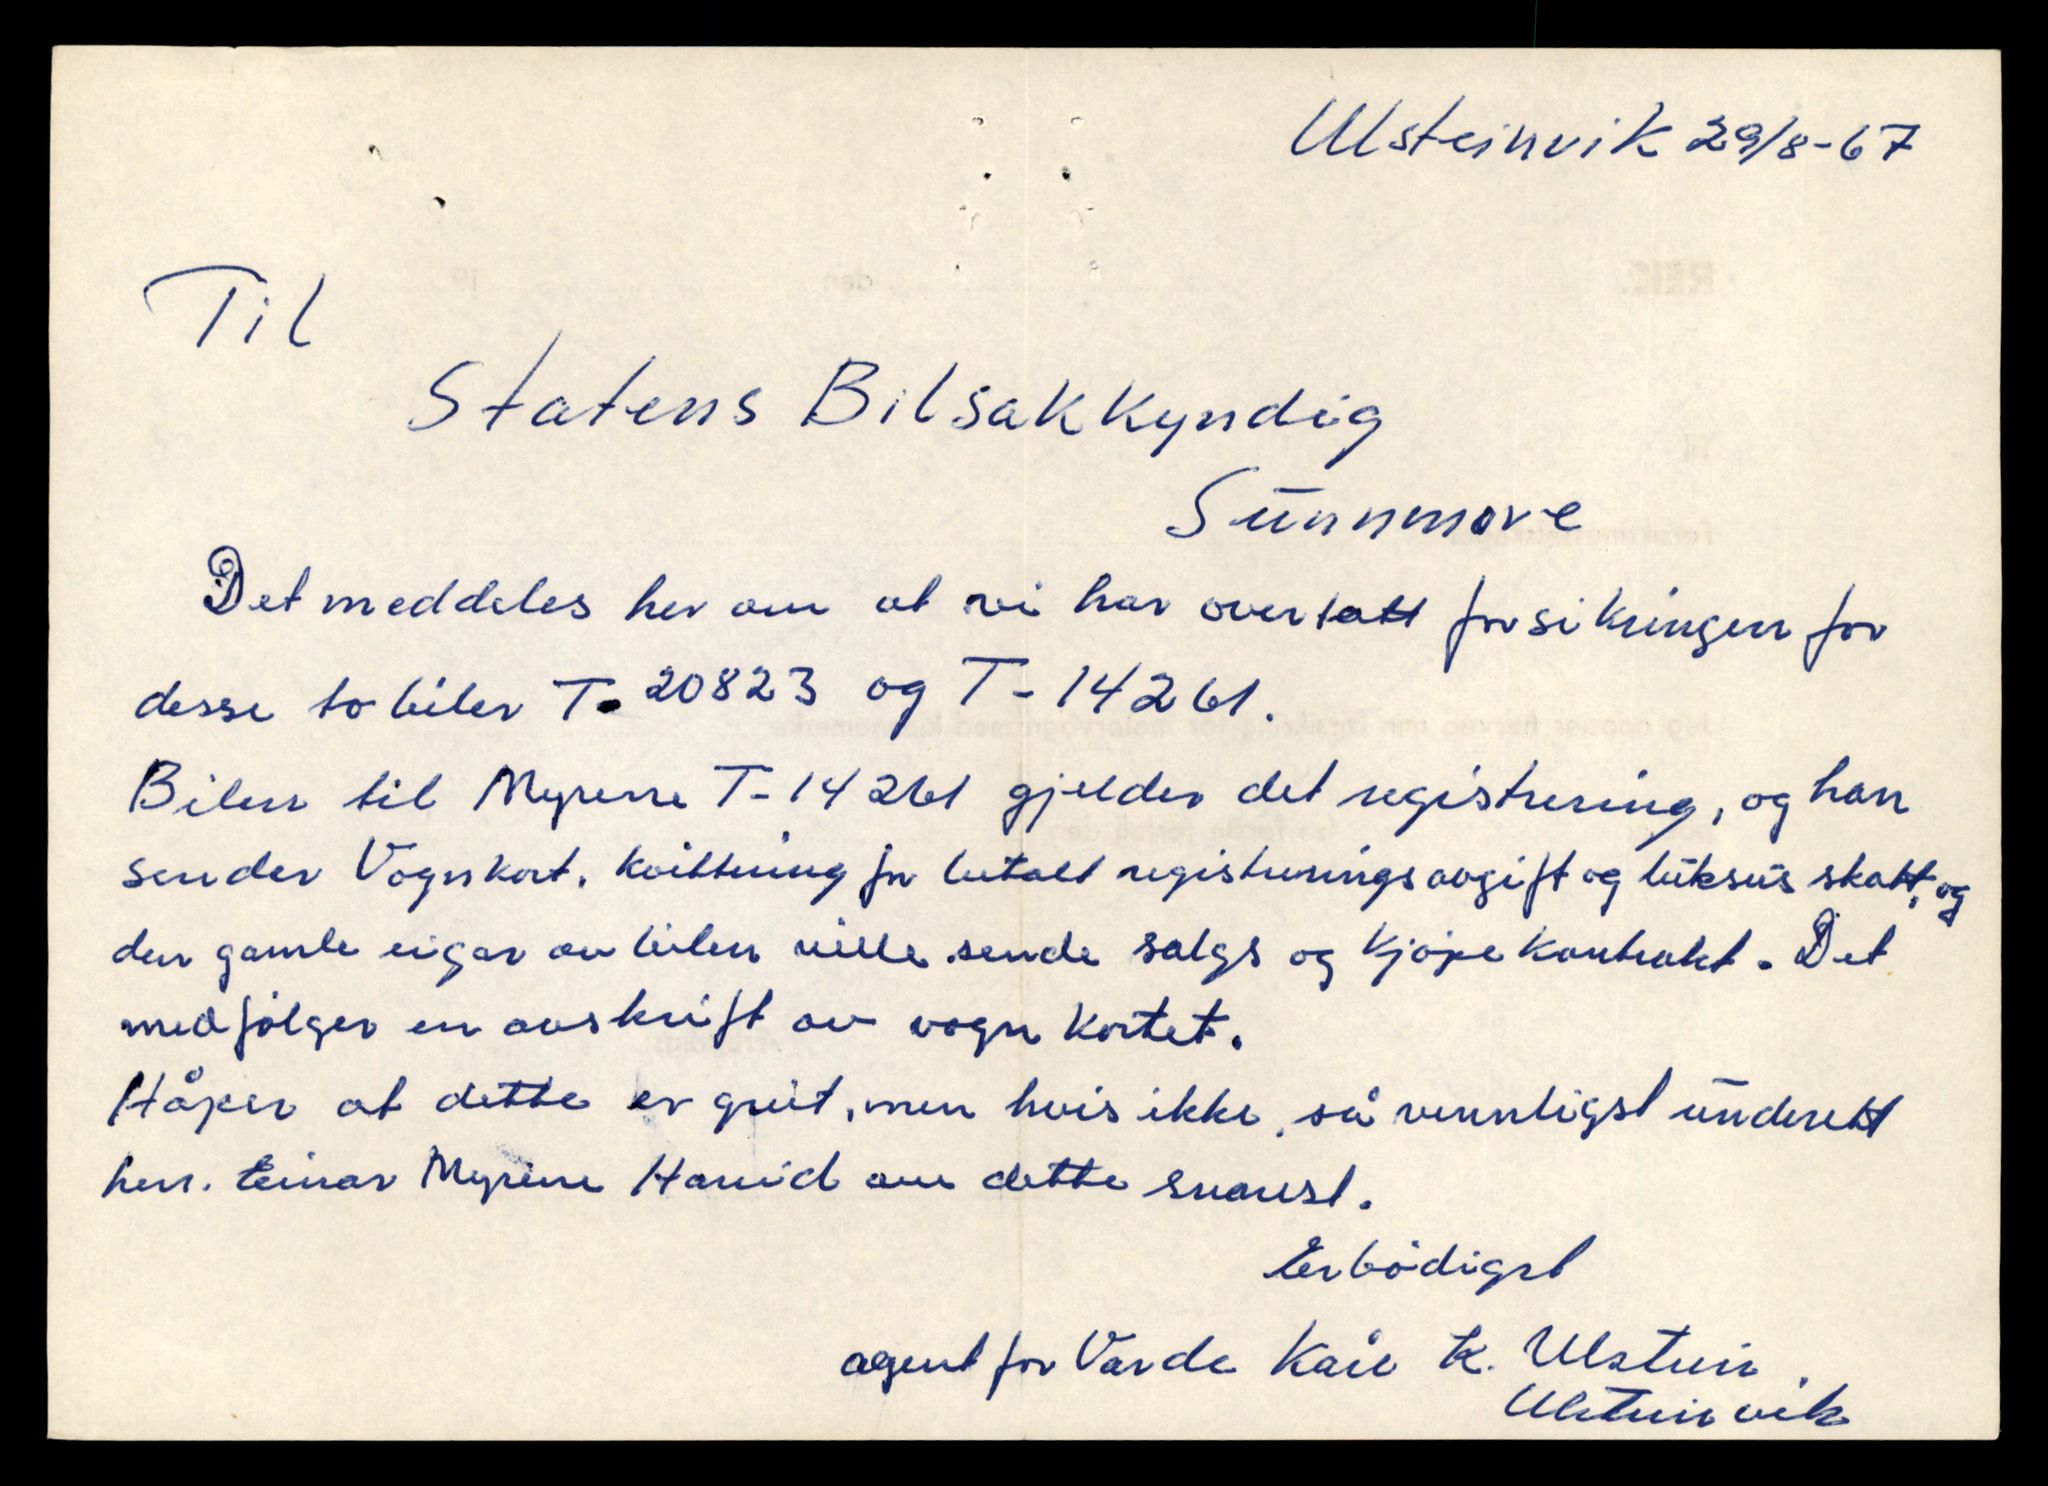 Ulsteinvik 29/8-67
Til
Statens Bilsakkyndig
Sunnmøre
Det meddeles her om at vi har overtatt forsikringen for
desse to biler T. 20823 og T-14261.
Bilen til Myrene T-14261 gjelder det registrering, og han
sender Vognkort. kvittering for betalt registreringsavgift og luksus skatt, og
den gamle eigar av bilen ville sende salgs og kjøpe kontrakt. Det
medfølger en avskrift av vogn kortet.
Håper at dette er greit, men hvis ikke, så vennligst underett
herr. Einar Myrene Hareid om dette snarest.
Erbødigst
agent for Varde Kåre K. Ulstein
Ulsteinvik